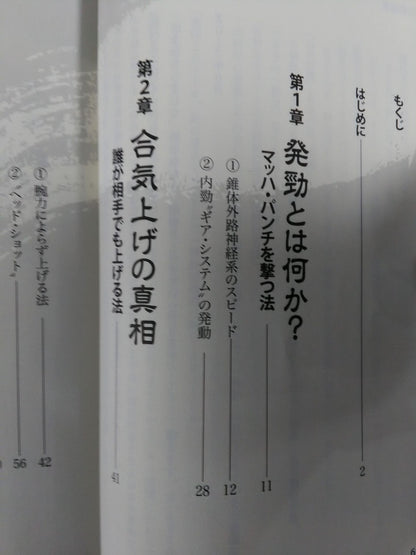 もくじ
はじめに 2
第1章 発勁とは何か?
マッハ・パンチを撃つ法 11
① 錐体外路神経系のスピード 12
② 内勁〝ギア・システム〟の発動 28
第2章 合気上げの真相
誰が相手でも上げる法 41
① 腕力によらず上げる法 42
② 〝ヘッド・ショット〟 56